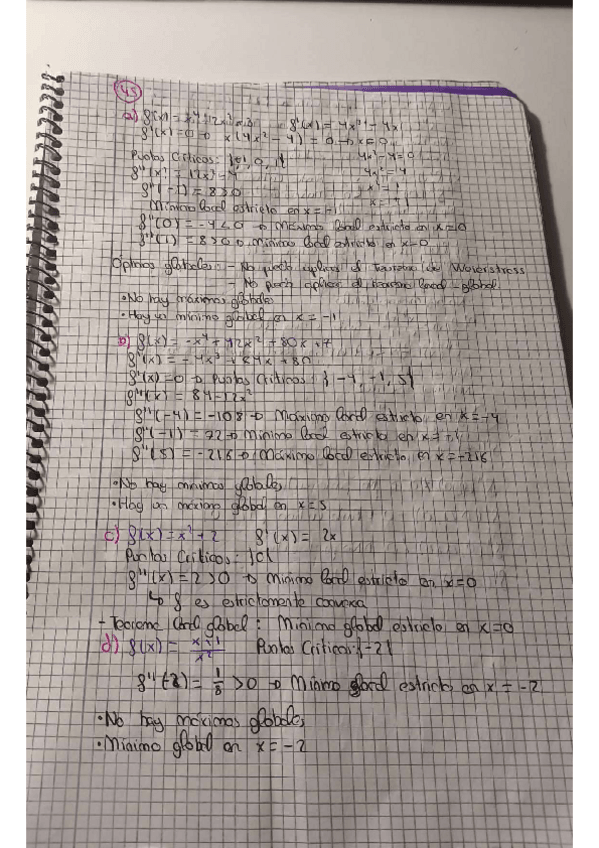 45
a) f(x) = x⁴-2x²+3 f'(x) = 4x³-4x
f'(x)=0 → x(4x²-4) = 0 → x=0
Puntos Críticos: {-1, 0, 1} 4x²-4=0
f''(x) = 12x²-4 4x²=4
f''(-1) = 8>0 x²=1
Mínimo local estricto en x=-1
f''(0) = -4<0 → Máximo local estricto en x=0
f''(1) = 8>0 → mínimo local estricto en x=0
Óptimos globales: - No puedo aplicar el Teorema de Weierstrass
- No puedo aplicar el teorema local-global.
• No hay máximos globales
• Hay un mínimo global en x = -1
b) f(x) = -x⁴ + 42x² + 80x + 7
f'(x) = -4x³ + 84x + 80
f'(x)=0 → Puntos Críticos: {-4, -1, 5}
f''(x) = 84-12x²
f''(-4) = -108 → Máximo local estricto en x=-4
f''(-1) = 72 → Mínimo local estricto en x=-1
f''(5) = -216 → Máximo local estricto en x=-216
• No hay mínimos globales
• Hay un máximo global en x=5
c) f(x) = x²+2 f'(x) = 2x
Puntos Críticos: {0}
f''(x) = 2>0 → Mínimo local estricto en x=0
↳ f es estrictamente convexa
- Teorema local global: Mínimo global estricto en x=0
d) f(x) = x+1/x² Puntos Críticos: {-2}
f''(-2) = 1/8 >0 → Mínimo local estricto en x = -2
• No hay máximos globales
• Mínimo global en x = -2